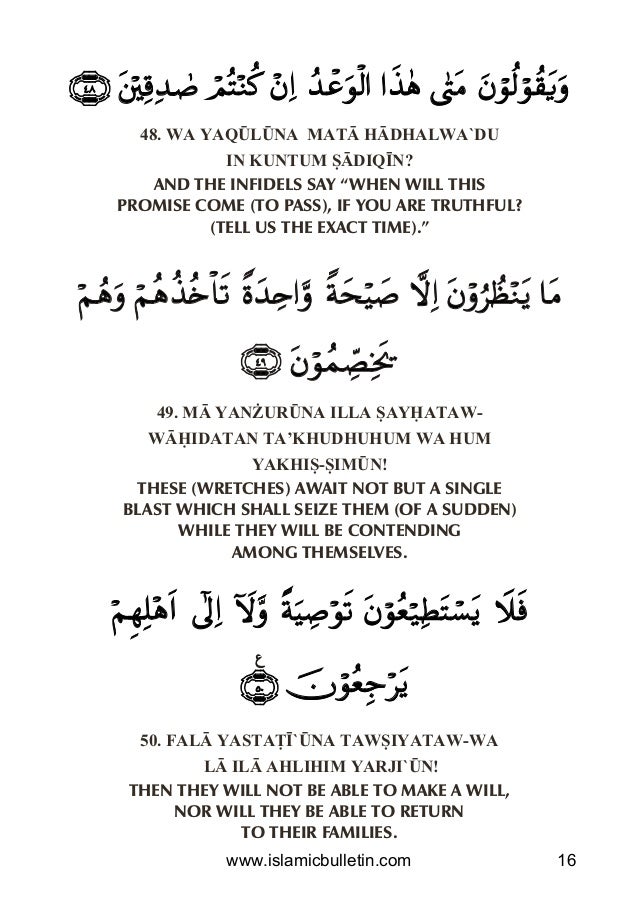 وَيَقُوْلُوْنَ مَتٰى هٰذَا الْوَعْدُ اِنْ كُنْتُمْ صٰدِقِيْنَ ﴿٤٨﴾
48. WA YAQŪLŪNA MATĀ HĀDHALWA`DU
IN KUNTUM ṢĀDIQĪN?
AND THE INFIDELS SAY “WHEN WILL THIS
PROMISE COME (TO PASS), IF YOU ARE TRUTHFUL?
(TELL US THE EXACT TIME).”
مَا يَنْظُرُوْنَ اِلَّا صَيْحَةً وَّاحِدَةً تَاْخُذُهُمْ وَهُمْ
يَخِصِّمُوْنَ ﴿٤٩﴾
49. MĀ YANŻURŪNA ILLA ṢAYḤATAW-
WĀḤIDATAN TA’KHUDHUHUM WA HUM
YAKHIṢ-ṢIMŪN!
THESE (WRETCHES) AWAIT NOT BUT A SINGLE
BLAST WHICH SHALL SEIZE THEM (OF A SUDDEN)
WHILE THEY WILL BE CONTENDING
AMONG THEMSELVES.
فَلَا يَسْتَطِيْعُوْنَ تَوْصِيَةً وَّلَآ اِلٰٓى اَهْلِهِمْ
يَرْجِعُوْنَ ﴿٥٠﴾ ع
50. FALĀ YASTAṬĪ`ŪNA TAWṢIYATAW-WA
LĀ ILĀ AHLIHIM YARJI`ŪN!
THEN THEY WILL NOT BE ABLE TO MAKE A WILL,
NOR WILL THEY BE ABLE TO RETURN
TO THEIR FAMILIES.
www.islamicbulletin.com 16